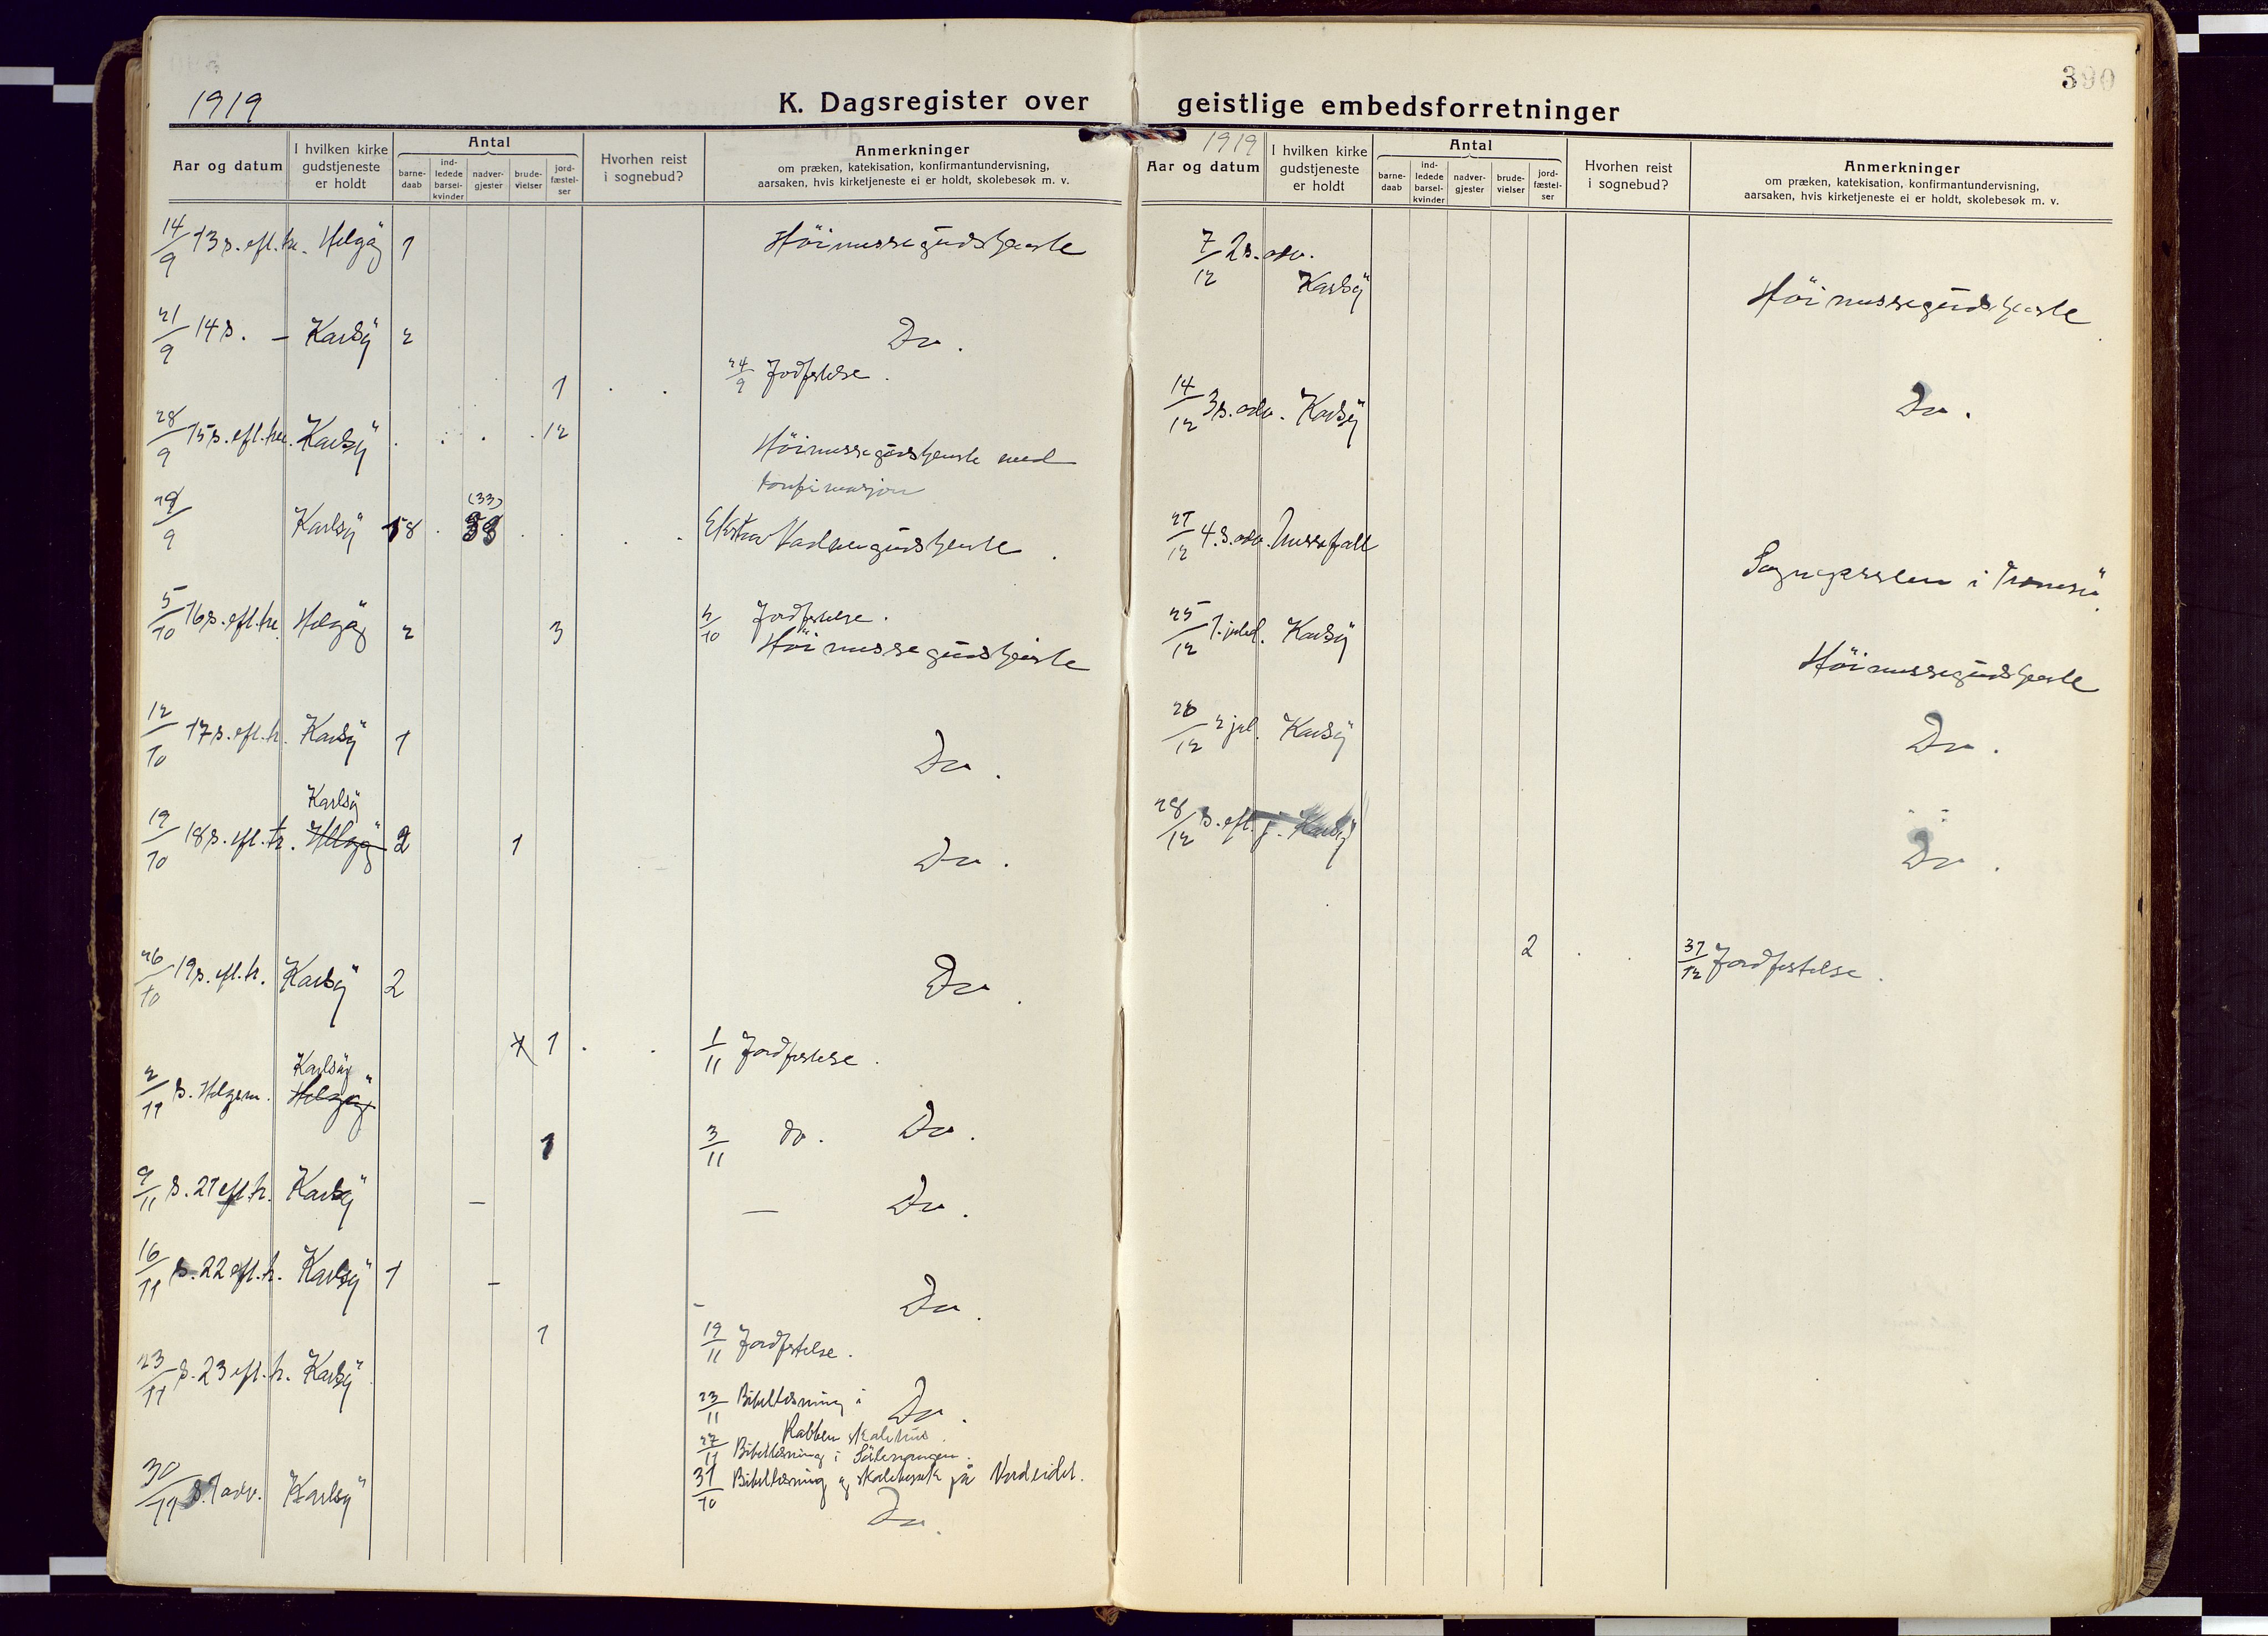 1919
K. Dagsregister over
Aar og datum
I hvilken kirke gudstjeneste er holdt
Antal
barne-daab
ind-ledede barsel-kvinder
nadver-gjester
brude-vielser
jord-fæstel-ser
Hvorhen reist i sognebud?
Anmerkninger
om præken, katekisation, konfirmantundervisning,
aarsaken, hvis kirketjeneste ei er holdt, skolebesøk m. v.
14/9 13 s. eft. tr. Helgöy 1 Höimessegudstjeneste
21/9 14 s. – Karlsöy 2 Do.
1 24/9 Jordfestelse.
28/9 15 s. eft. tr. Karlsöy 12 Höimessegudstjeneste med
konfirmasjon
29/9 Karlsöy 18 (33) 33 Ekstra Nadvergudstjeneste.
5/10 16 s. eft. tr. Helgöy 2 3 2/10 Jordfestelse.
Höimessegudstjeneste
12/10 17 s. eft. tr. Karlsöy 1 Do.
Karlsöy
19/10 18 s. eft. tr. Helgöy 2 1 Do.
26/10 19 s. eft. tr. Karlsöy 2 Do.
1 1 1/11 Jordfestelse.
Karlsöy
2/11 s. Helgem. Helgöy
1 3/11 do. Do.
9/11 s. 21 eft. tr. Karlsöy – – Do.
16/11 s. 22 eft. tr. Karlsöy 1 – Do.
1 19/11 Jordfestelse.
23/11 s. 23 eft. tr. Karlsöy
23/11 Bibellesning i Do.
Rabben skolehus.
27/11 Bibellesning i
31/10 Bibellesning og skolebesøk på Nordeidet.
30/11 s. 1 adv. Karlsöy Do.
390
geistlige embedsforretninger
1919
Aar og datum
I hvilken kirke gudstjeneste er holdt
Antal
barne-daab
ind-ledede barsel-kvinder
nadver-gjester
brude-vielser
jord-fæstel-ser
Hvorhen reist i sognebud?
Anmerkninger
om præken, katekisation, konfirmantundervisning,
aarsaken, hvis kirketjeneste ei er holdt, skolebesøk m. v.
7/12 2 s. adv.
Karlsöy Höimessegudstjeneste.
14/12 3 s. adv. Karlsöy Do.
21/12 4. s. adv. Messefall
Sognepresten i Tromsö.
25/12 1. juled. Karlsöy Höimessegudstjeneste
26/12 2 jul. Karlsöy Do.
28/12 s. eft. j. Karlsöy Do.
2 31/12 Jordfestelse.